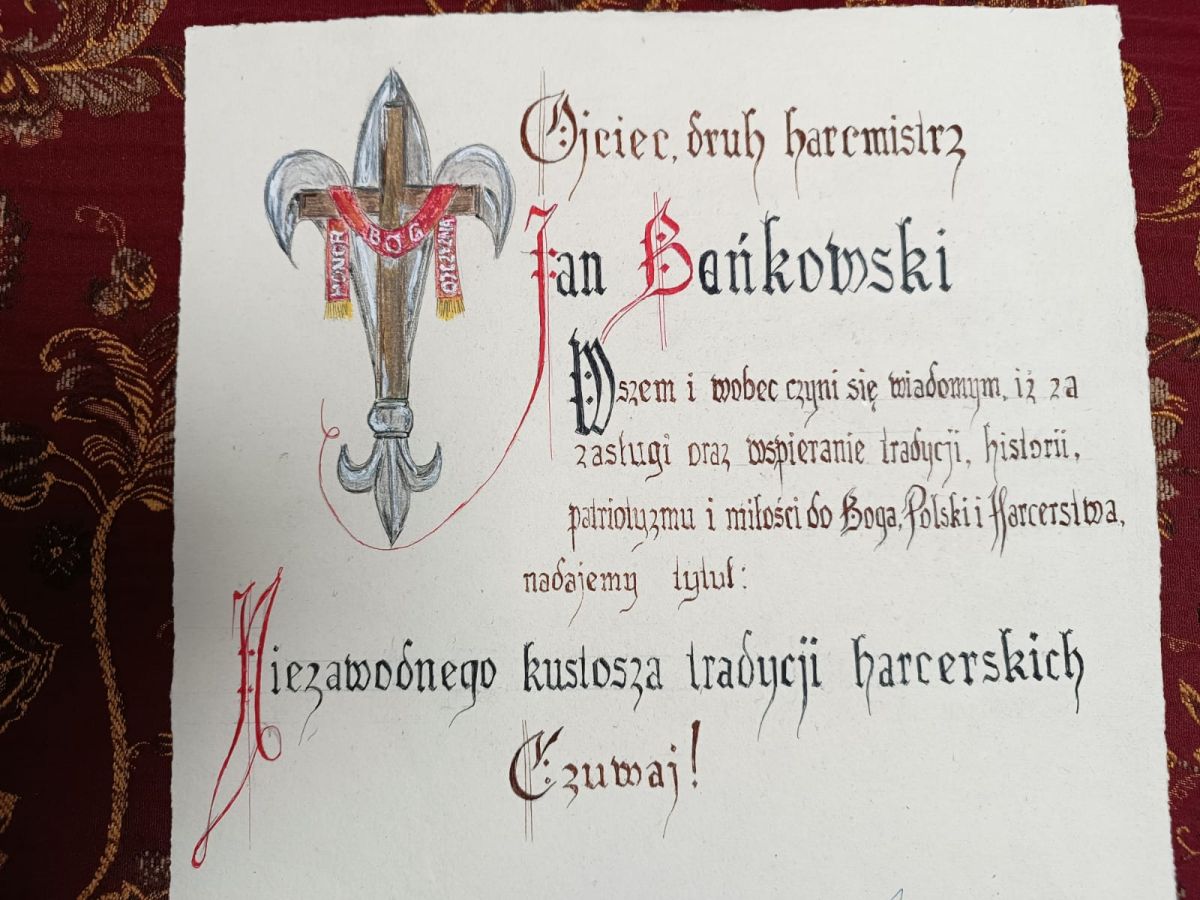 HONOR
BÓG
OJCZYZNA
Ojciec, druh harcmistrz
Jan Bańkowski
Wszem i wobec czyni się wiadomym, iż za
zasługi oraz wspieranie tradycji, historii,
patriotyzmu i miłości do Boga, Polski i Harcerstwa,
nadajemy tytuł:
Niezawodnego kustosza tradycji harcerskich
Czuwaj!